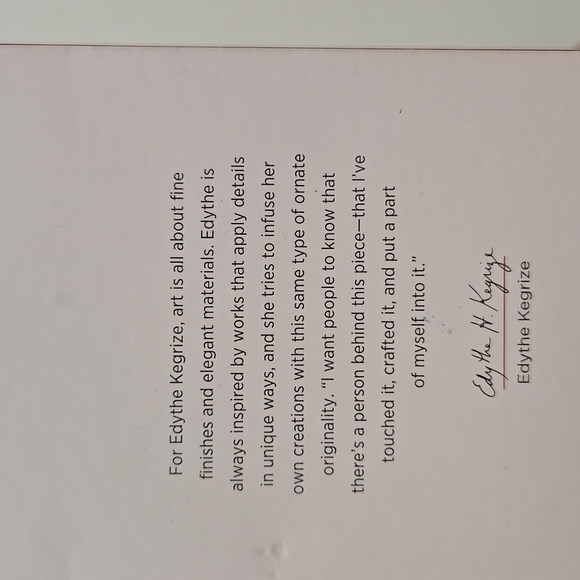 For Edythe Kegrize, art is all about fine
finishes and elegant materials. Edythe is
always inspired by works that apply details
in unique ways, and she tries to infuse her
own creations with this same type of ornate
originality. “I want people to know that
there’s a person behind this piece—that I’ve
touched it, crafted it, and put a part
of myself into it.”
Edythe H. Kegrize
Edythe Kegrize